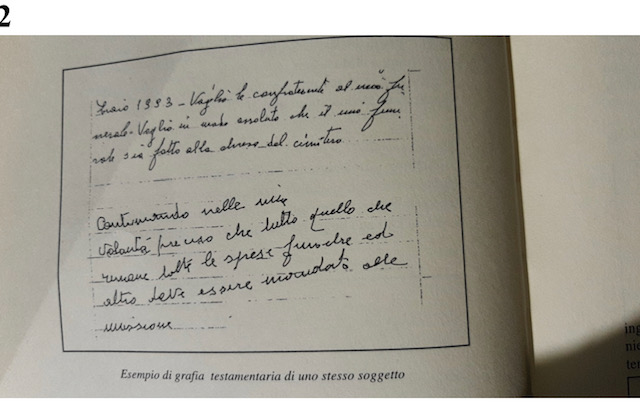 2
1993 - Voglio le confraternite al mio fu
nerale - Voglio in modo assoluto che il mio fune
rale sia fatto alla chiesa del cimitero
Continuando nelle mie
volontà preciso che tutto quello che
rimane tolte le spese funebre ed
altro deve essere mandato alle
missione
Esempio di grafia testamentaria di uno stesso soggetto
ing
nic